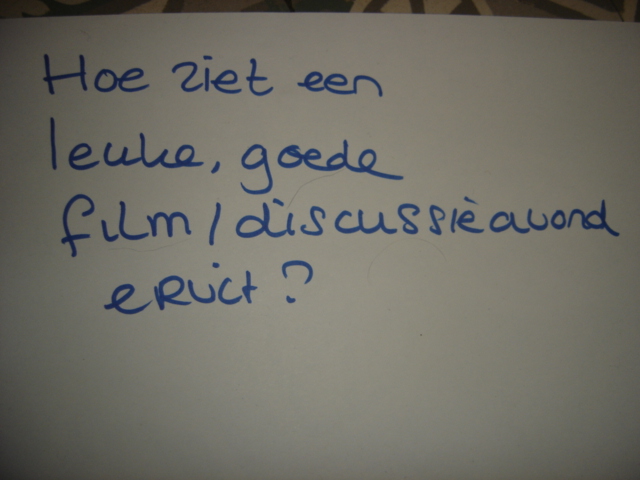 Hoe ziet een
leuke, goede
film/discussieavond
eruit?